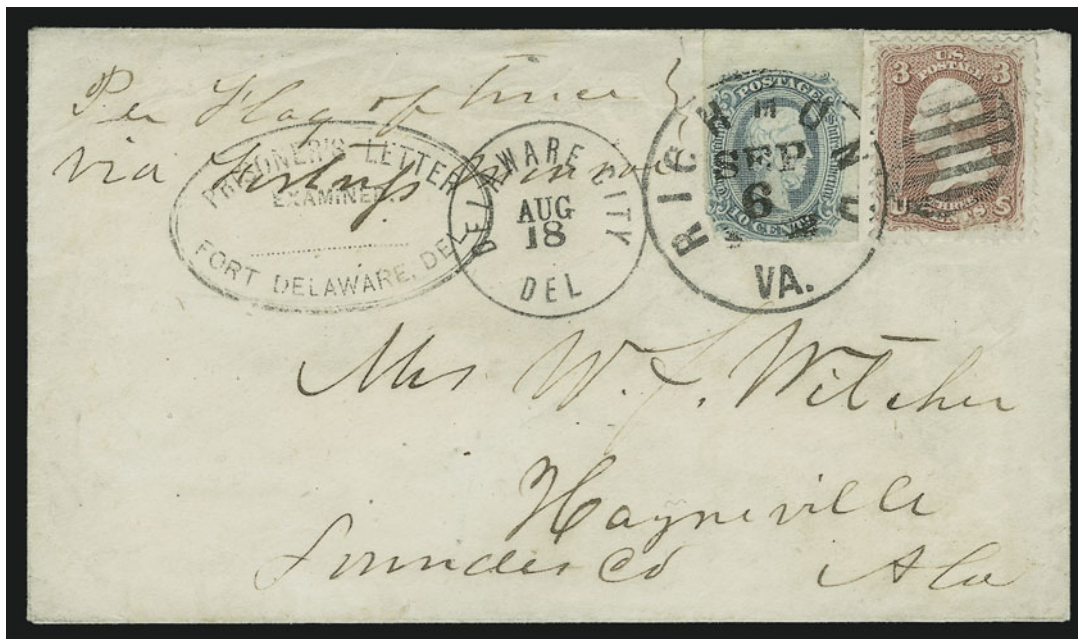 Per Flag of truce
via Fortress Monroe
PRISONER'S LETTER
EXAMINED.
FORT DELAWARE, DEL.
DELAWARE CITY
AUG
18
DEL
RICHMOND
SEP
6
VA.
POSTAGE
10 CENTS
U.S.
POSTAGE
3 3
U S
Mrs W. L. Witcher
Hayneville
Lowndes Co Ala